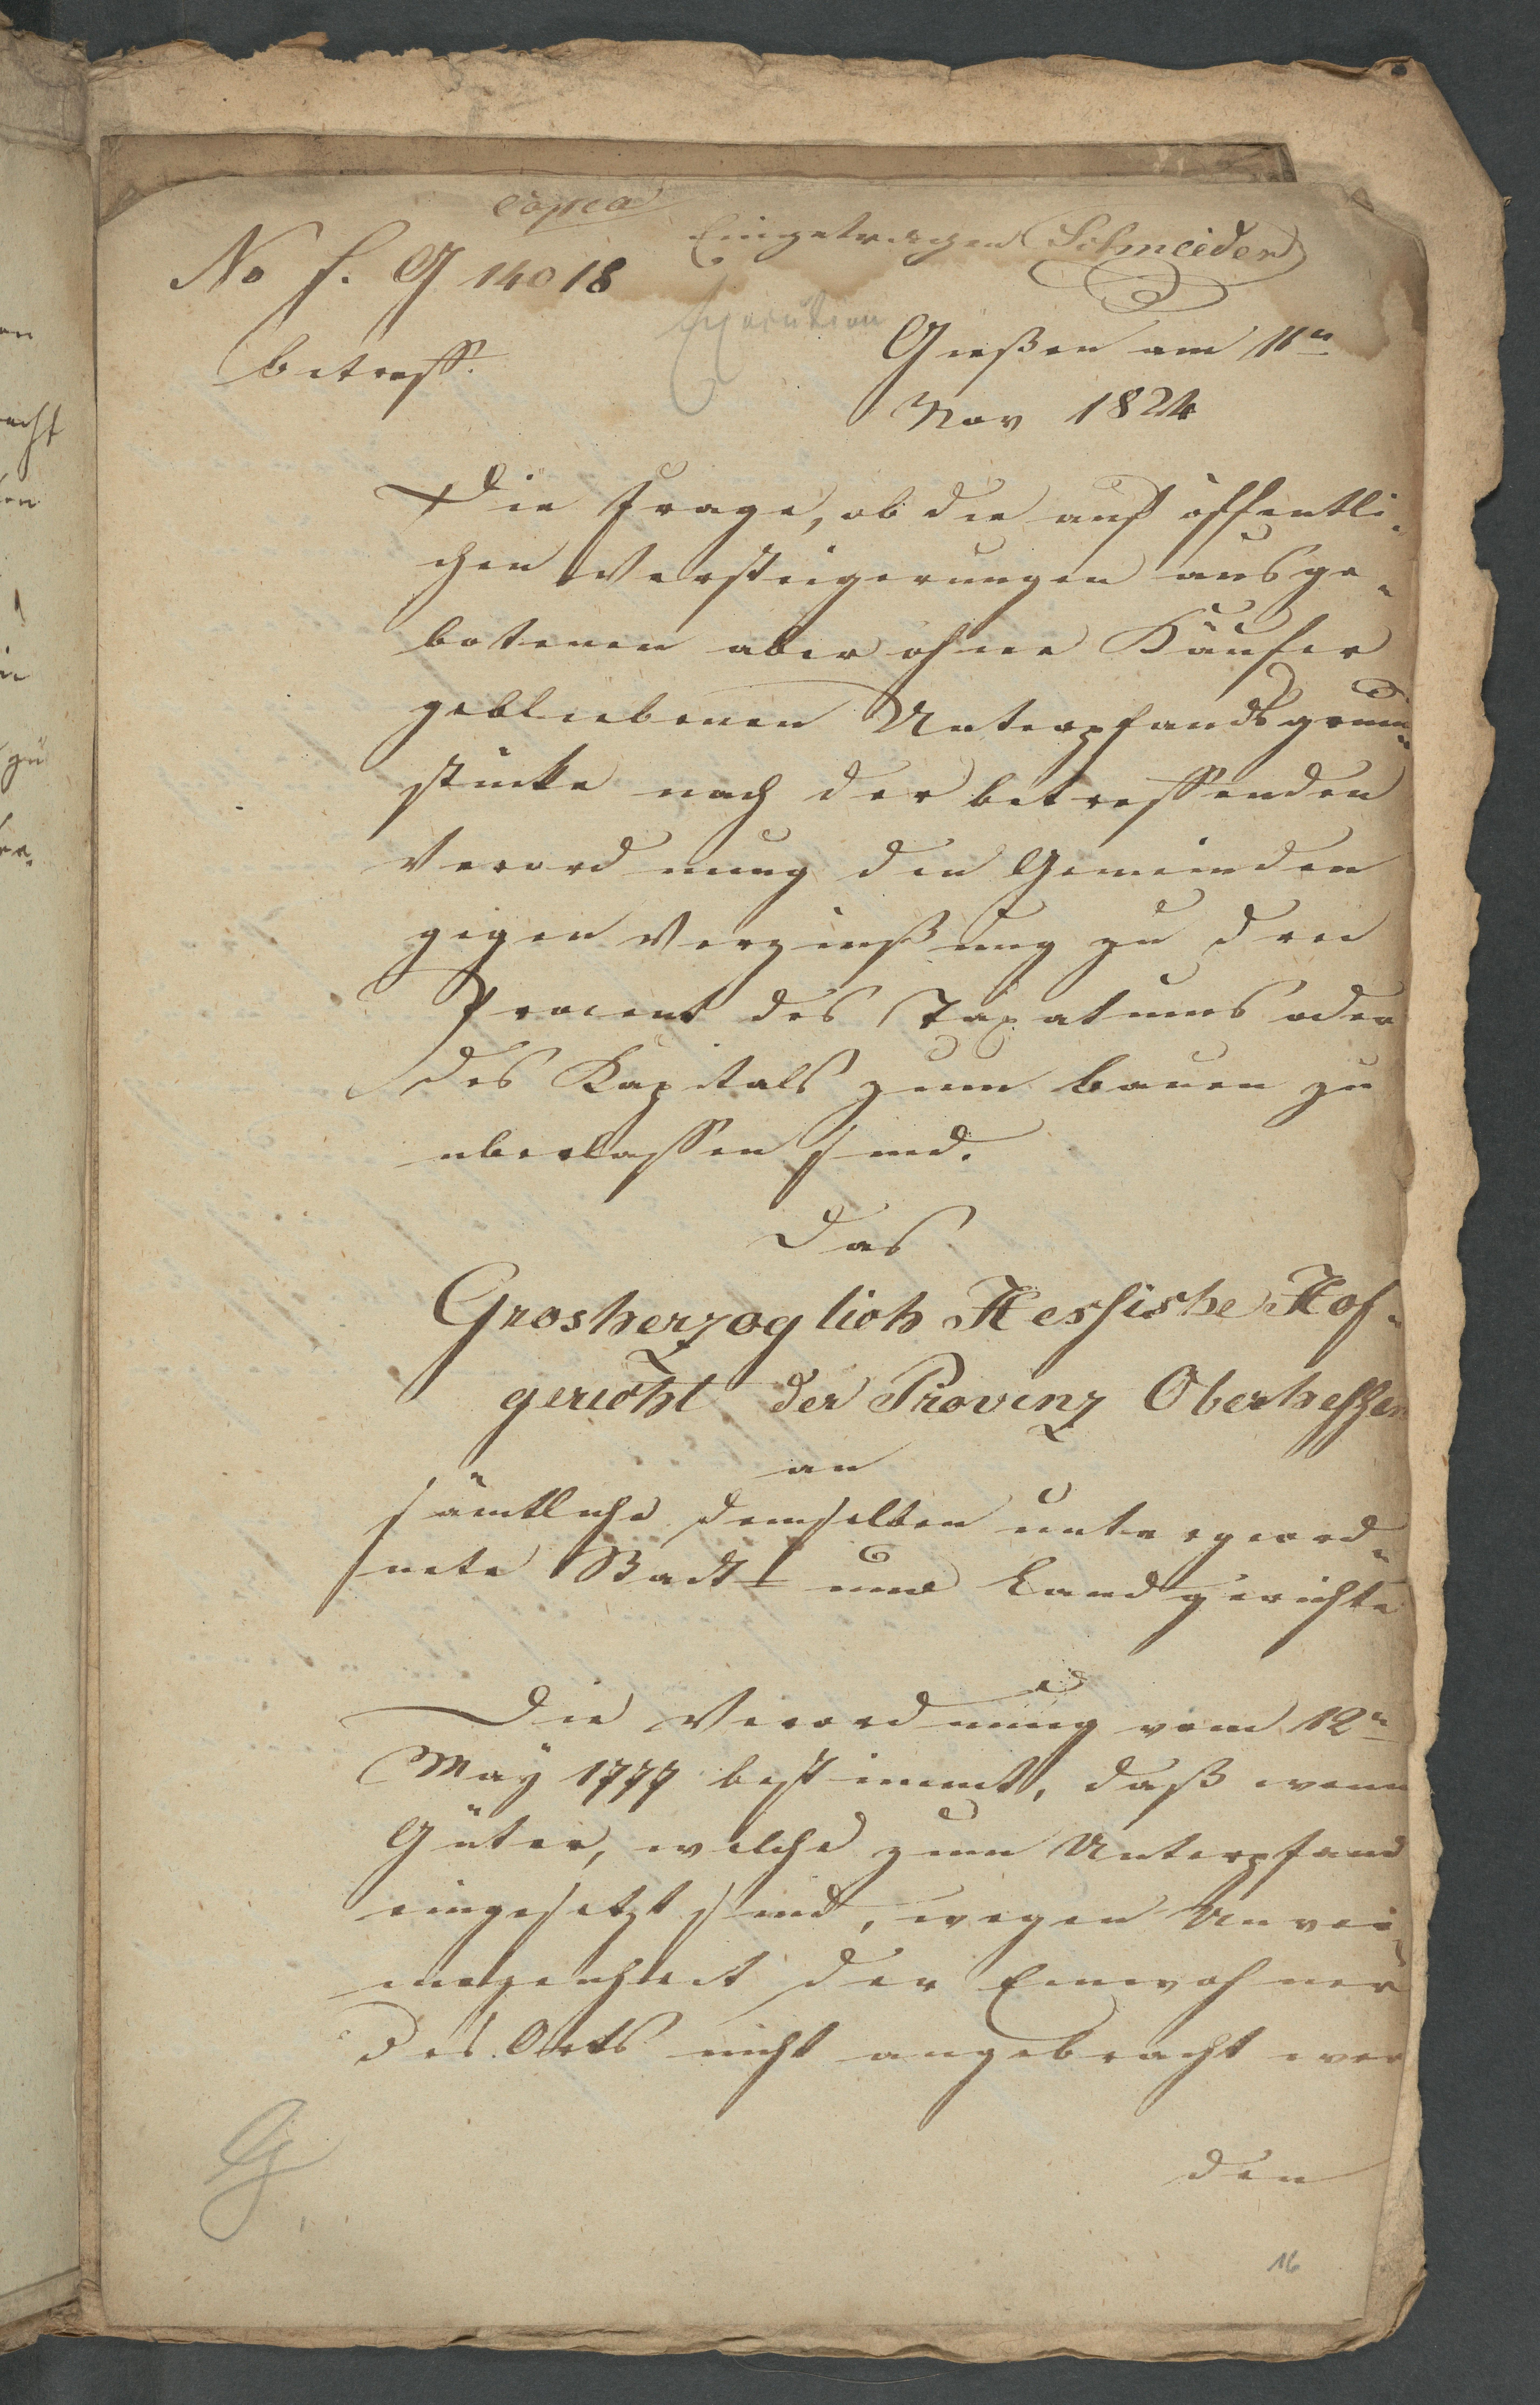 copia
Eingetragen Schneider
No h. G 14018
Execution
Gießen am 11n
betreff.
Nov 1824
Die Frage, ob die auf öffentli-
chen Versteigerungen ausge-
botenen aber ohne Käufer
gebliebenen Unterpfandsgrund-
stücke nach der betreffenden
Verordnung den Gemeinden
gegen Verzinßung zu drei
Procent des Taxatums oder
des Kapitals zum bauen zu
uberlassen sind.
Das
Grosherzoglich Hessishe Hof-
gericht der Provinz Oberhessen
an
sämtliche demselben untergeord-
nete Stadt und Landgerichte
Die Verordnung vom 12n
May 1777 bestimmt, daß wenn
Güter, welche zum Unterpfand
eingesetzt sind, wegen Unver-
mogenheit der Einwohner
des Orts nicht angebracht wer
den
16